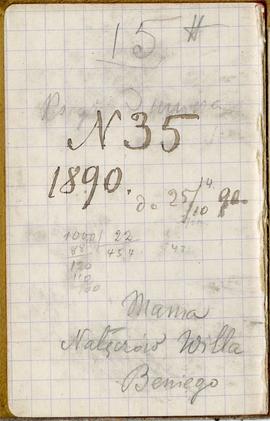 15 #
N 35
1890.
do 25/10 90
1000 22
88 454
120
110
100
Mama
Nałęczów Willa
Beniego